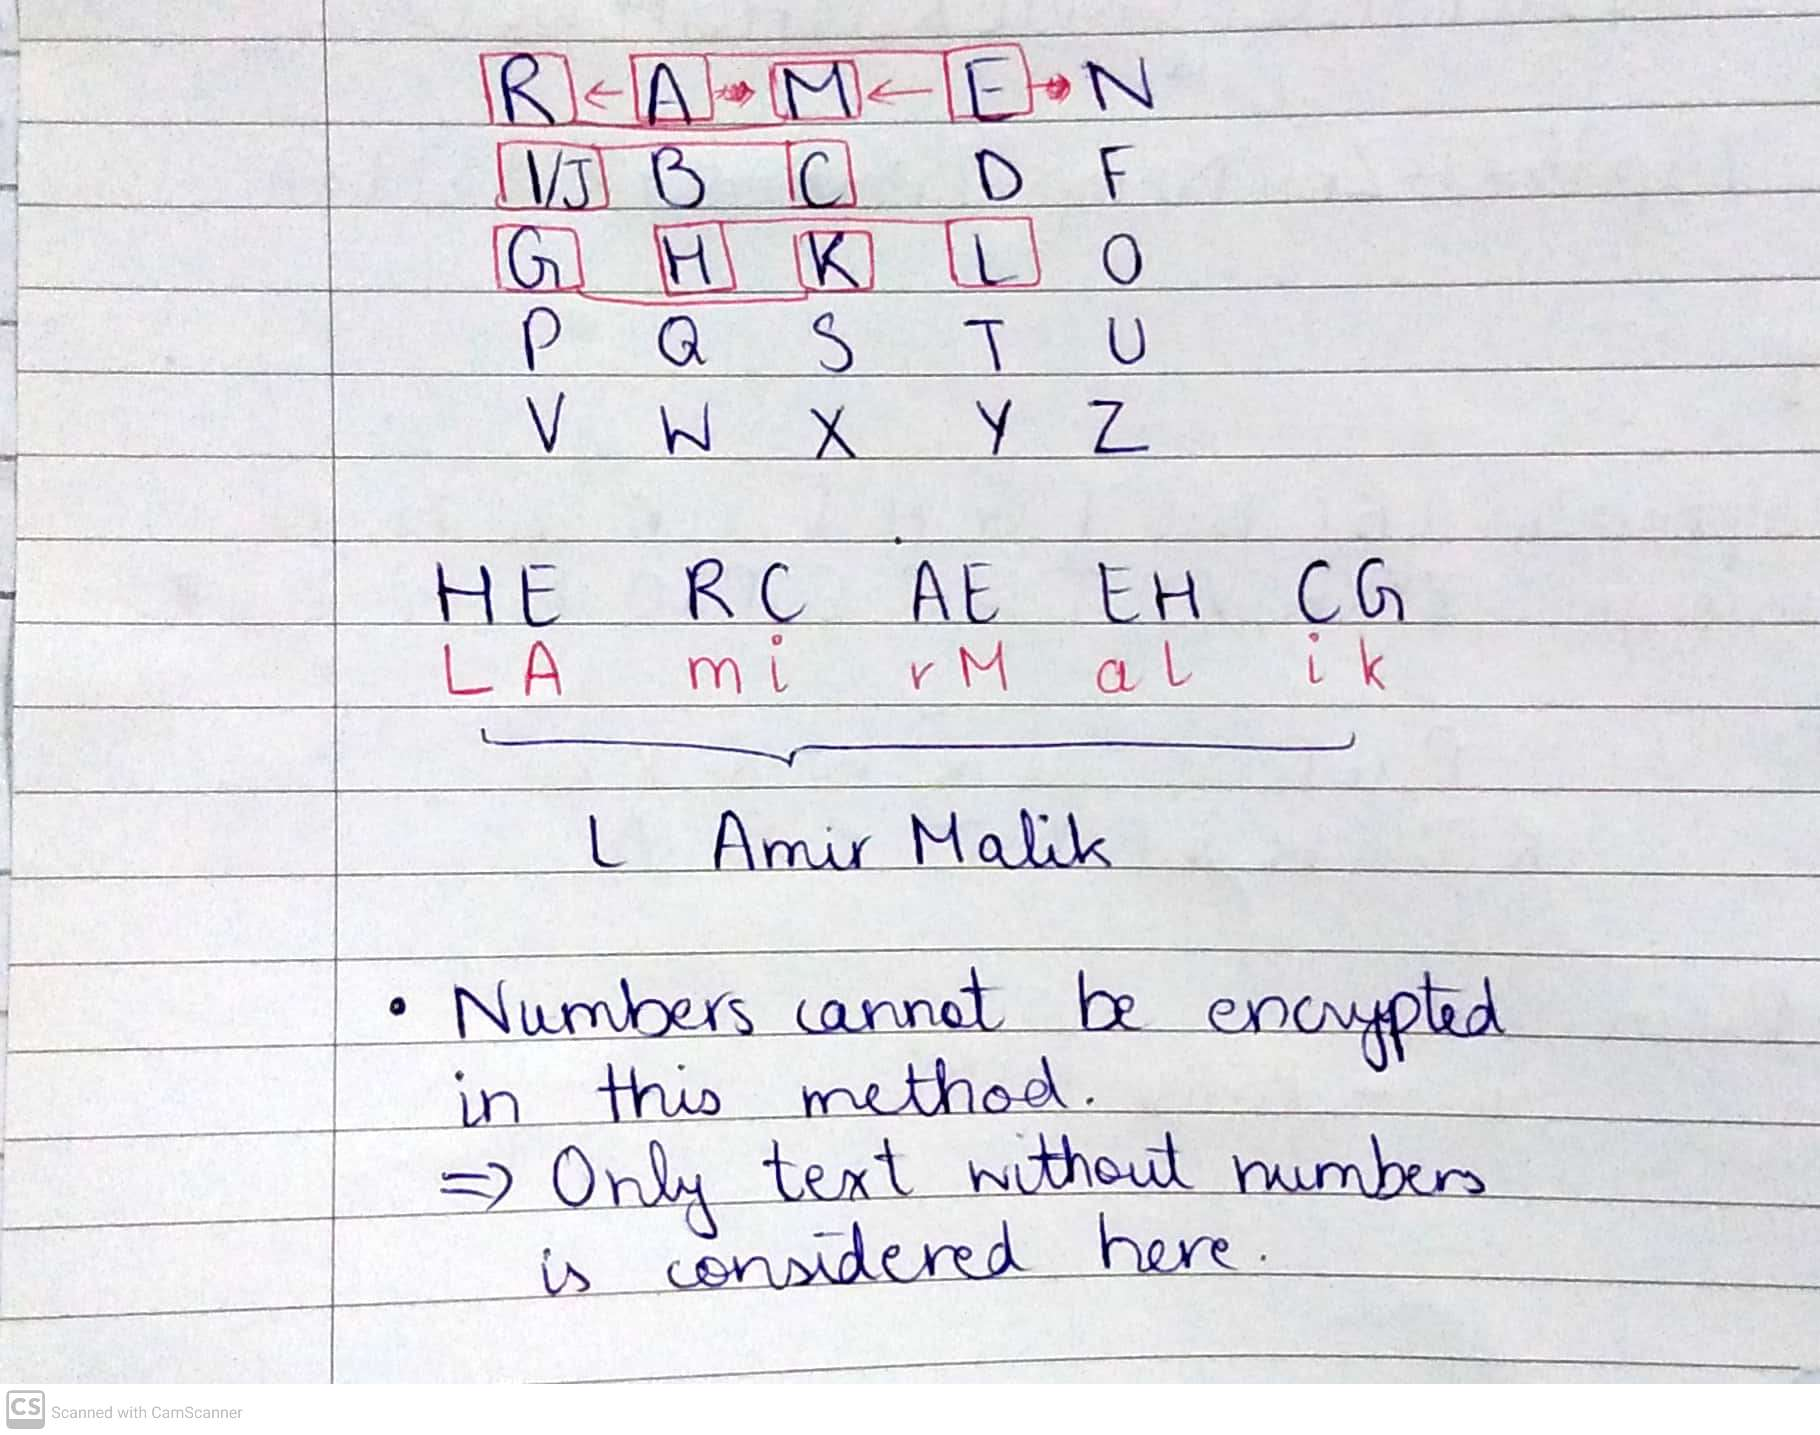 R ← A → M ← E → N
I/J B C D F
G H K L O
P Q S T U
V W X Y Z
HE RC AE EH CG
LA mi rM al ik
L Amir Malik
• Numbers cannot be encrypted
in this method.
⇒ Only text without numbers
is considered here.
CS Scanned with CamScanner